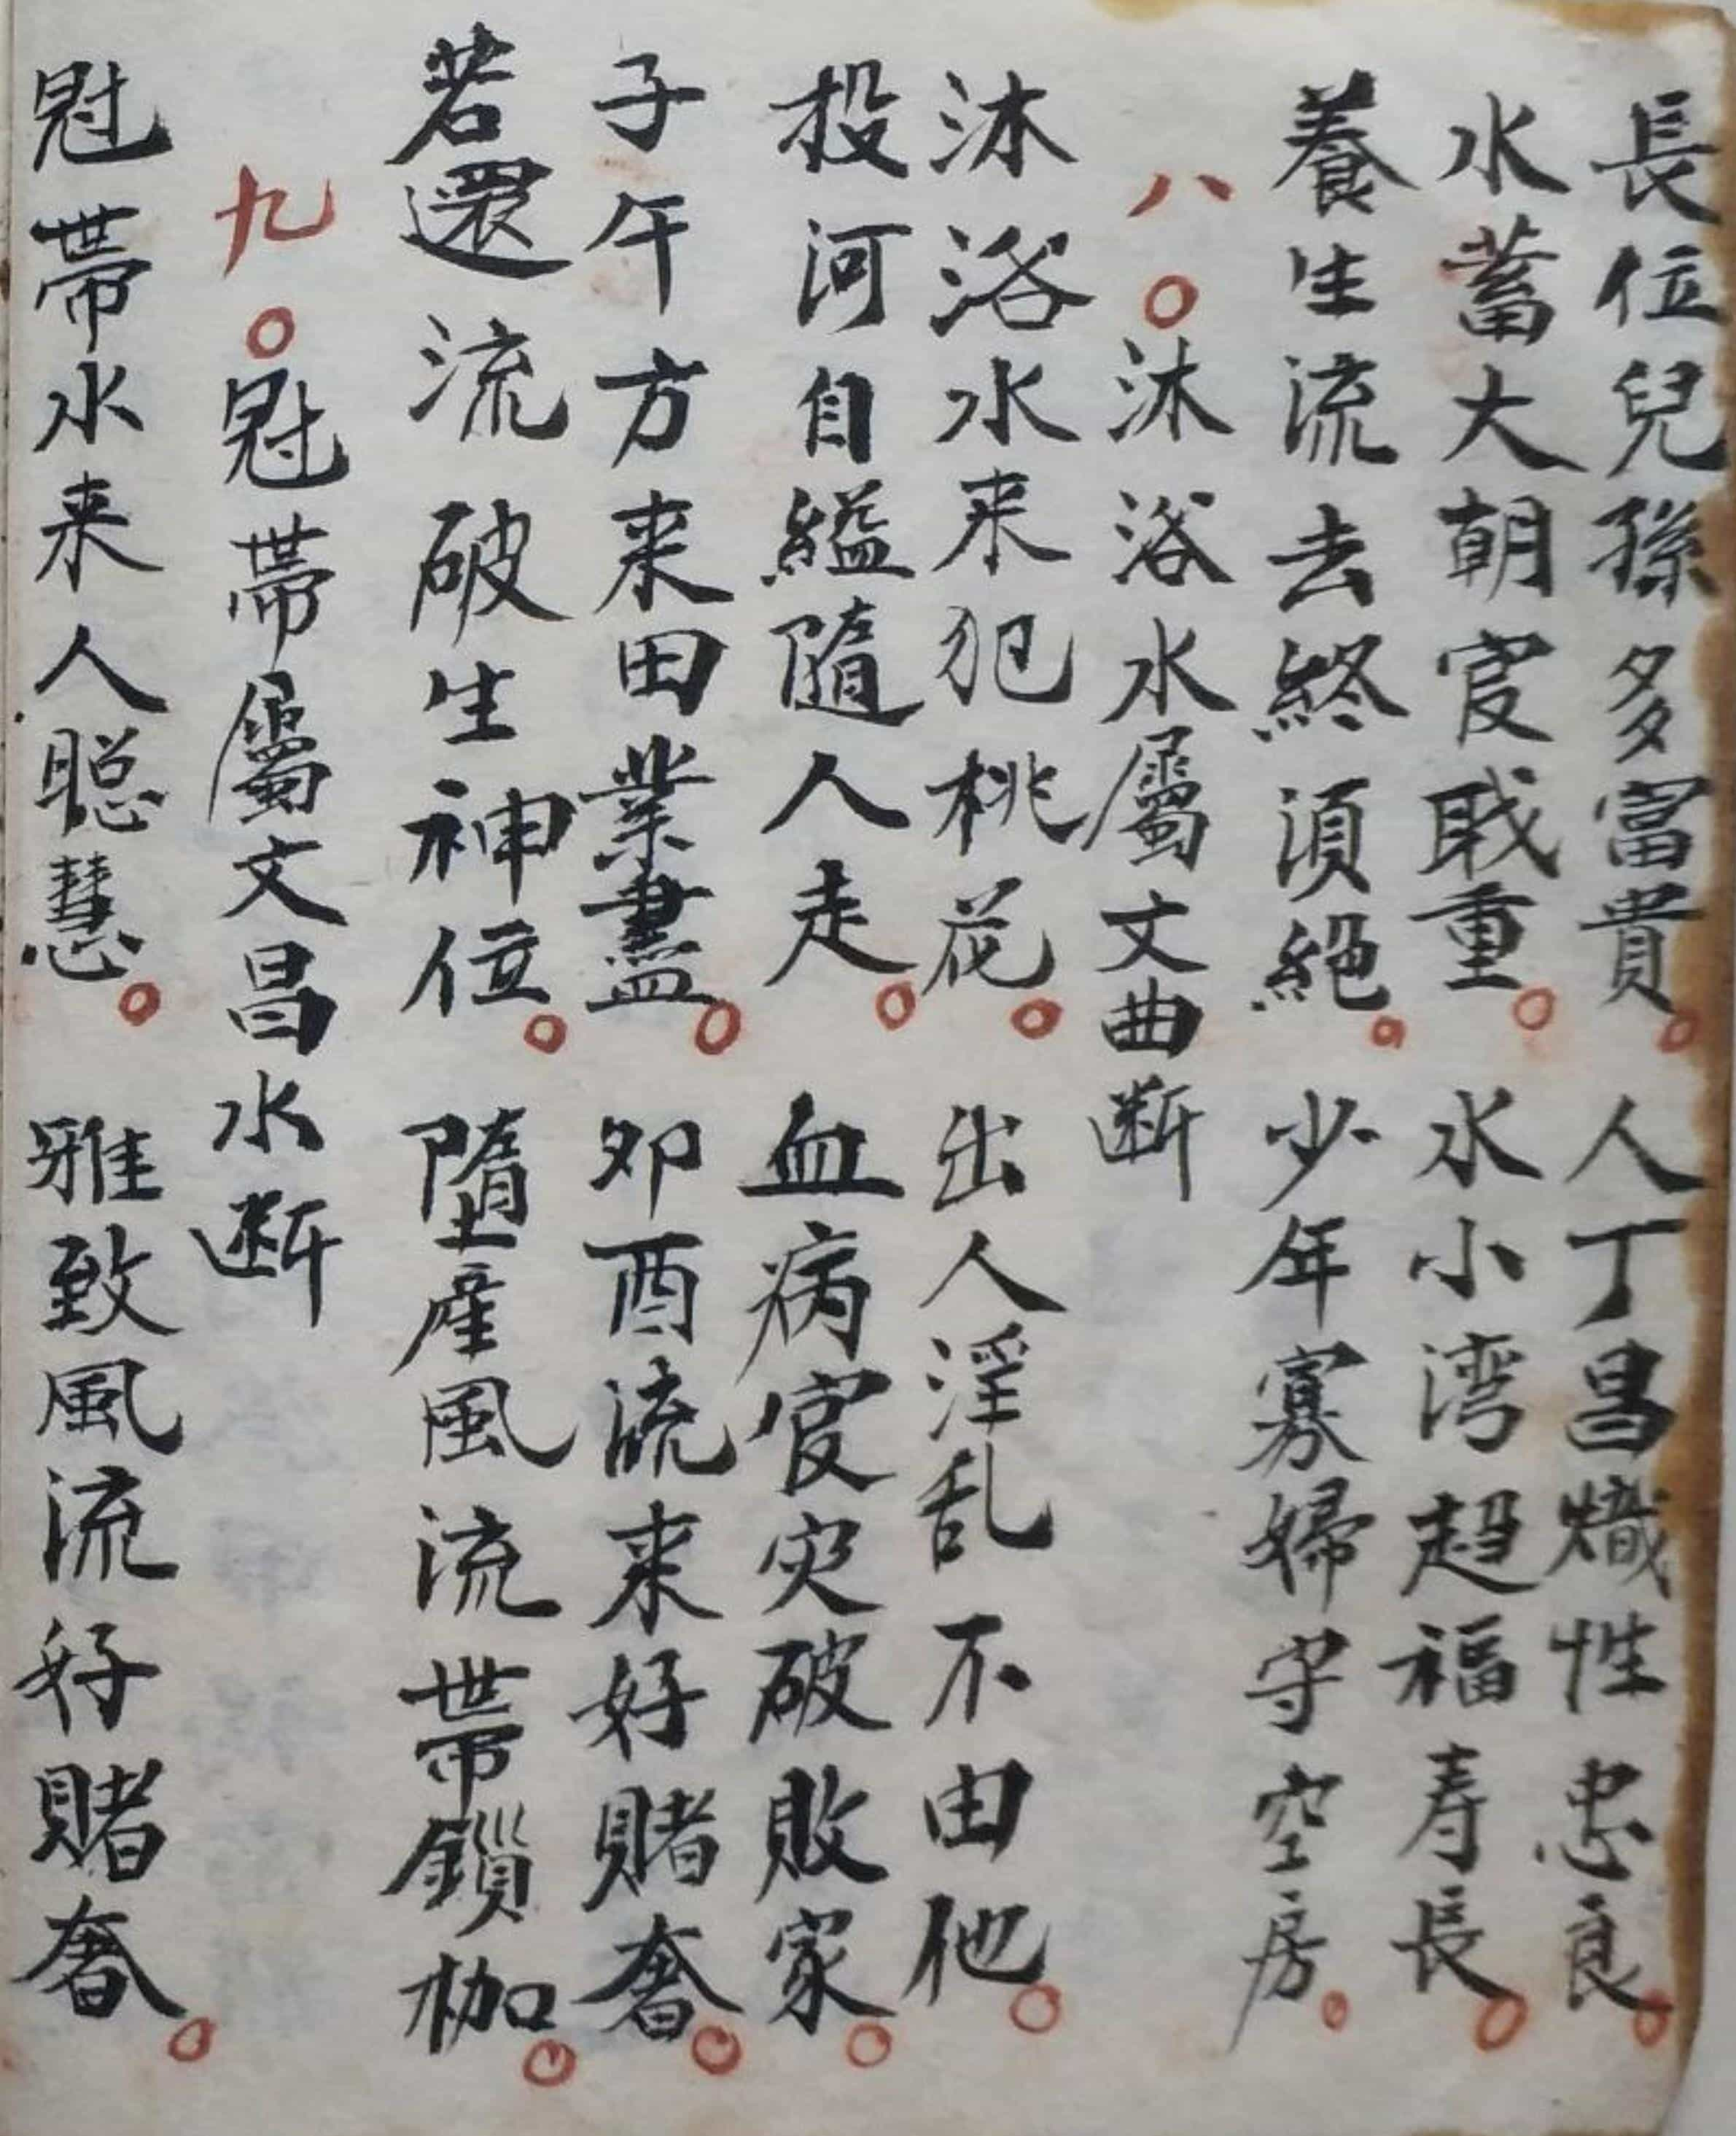 長位兒孫多富貴。人丁昌熾性忠良。
水蓄大朝官戝重。水小湾超福寿長。
養生流去終須絕。少年寡婦守空房。
八〇沐浴水屬文曲断
沐浴水来犯桃花。出人淫乱不由他。
投河自縊隨人走。血病官灾破敗家。
子午方来田業盡。卯酉流来好賭奢。
若還流破生神位。墮產風流帶鎖枷。
九〇冠帶屬文昌水断
冠帶水来人聡慧。雅致風流好賭奢。